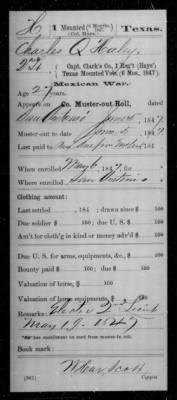 H | 1 Mounted (6 Months, 1847.) (Col. Hays.) | Texas.
Charles Q Haley
2 Lt, Capt. Clark's Co., 1 Reg't (Hays')
Texas Mounted Vols. (6 Mos., 1847).
Mexican War.
Age 27 years.
Appears on Co. Muster-out Roll,
San Antonio June 5, 1847.
Muster-out to date June 5, 1847.
Last paid to
When enrolled May 6, 1847.
Where enrolled San Antonio
Clothing account:
Last settled 184 ; drawn since $ 100
Due soldier $ 100 ; due U. S. $ 100
Am't for cloth'g in kind or money adv'd $ 100
Due U. S. for arms, equipments, &c., $ 100
Bounty paid $ 100 ; due $ 100
Valuation of horse, $ 100
Valuation of horse equipments, $ 100
Remarks: Elected 2d Lieut
May 19. 1847
Book mark:
Wm Scott
(361) Copyist.